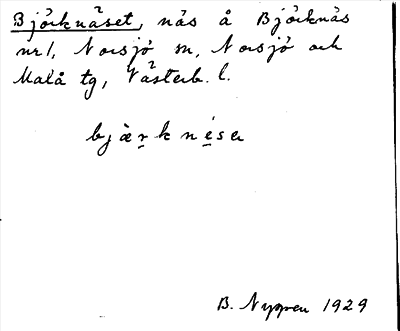 Björknäset, näs å Björknäs
nr 1, Norsjö sn, Norsjö och
Malå tg, Västerb. l.
bjæ̀r̤knésa
B. Nyppen 1929